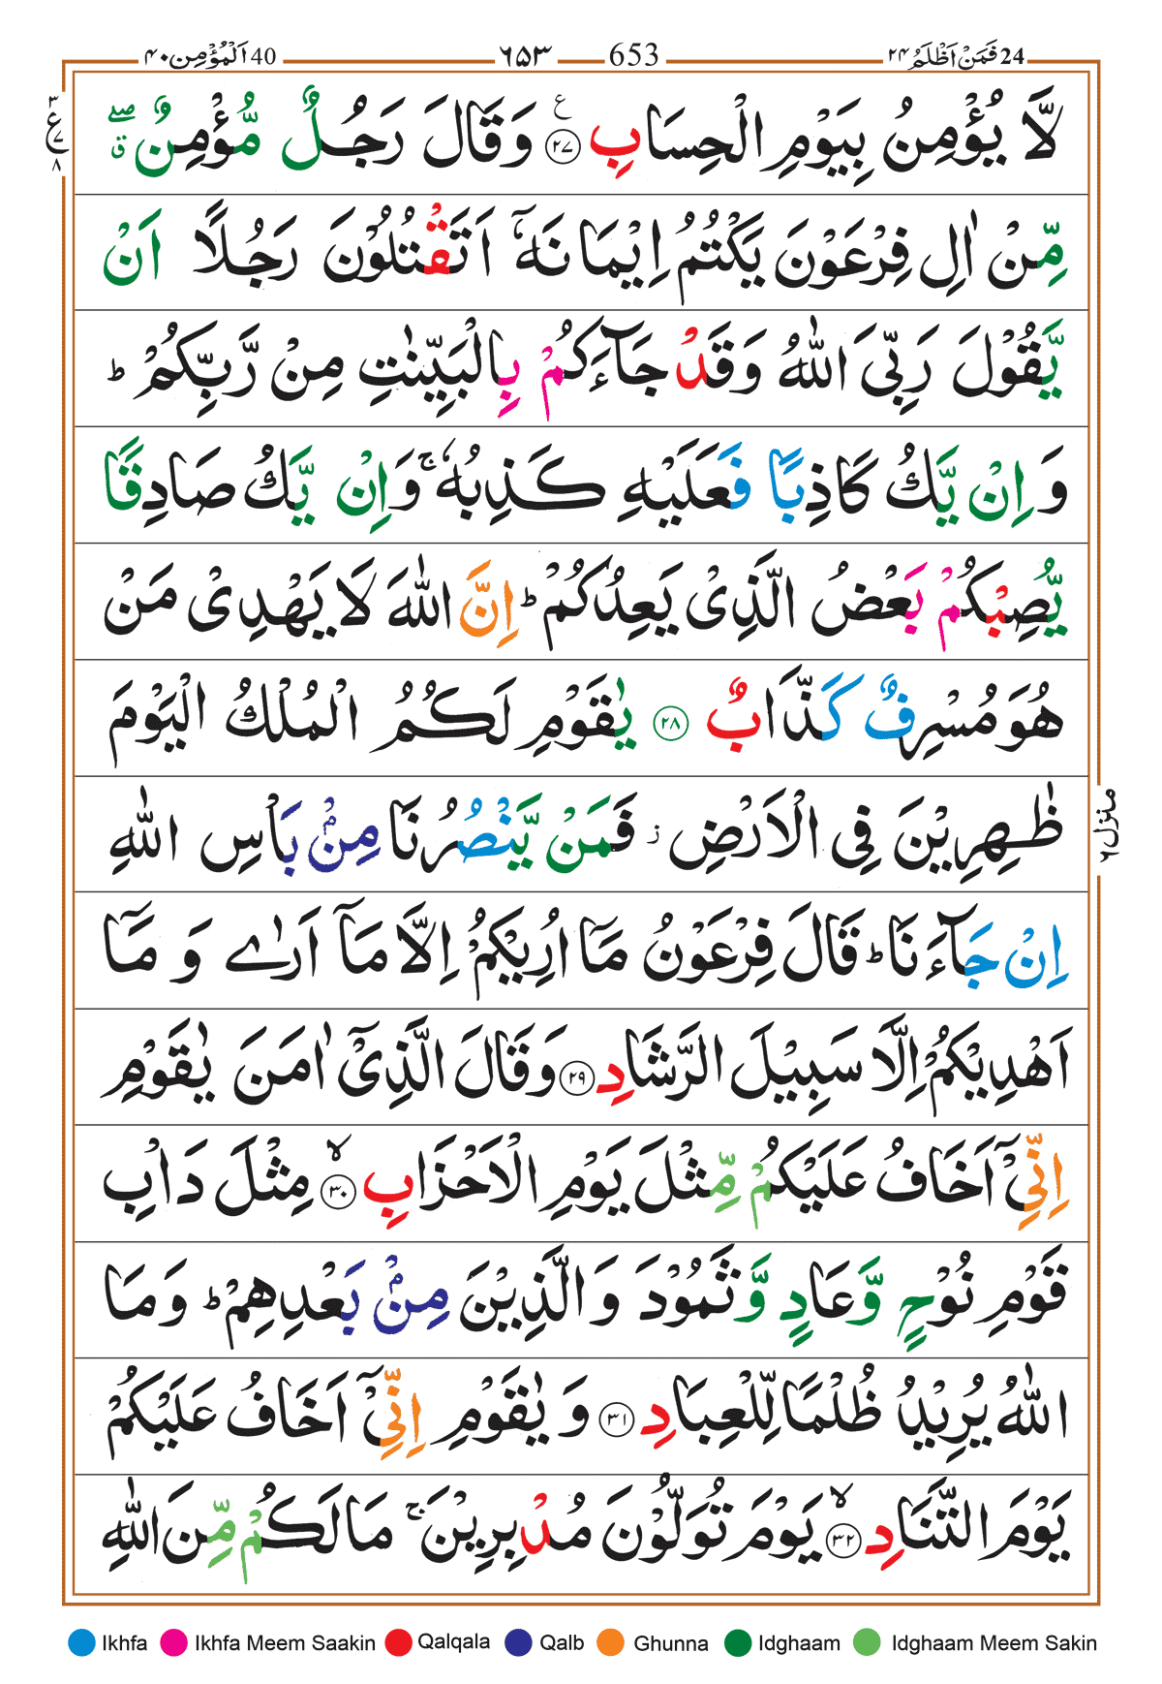 24 فَمَنْ اَظْلَمُ ۲۴ 653 ۶۵۳ 40 اَلْمُؤْمِن ۴۰
لَّا يُؤْمِنُ بِيَوْمِ الْحِسَابِ ﴿۲۷﴾ ع وَقَالَ رَجُلٌ مُّؤْمِنٌ ۖق
۳ ع ۷ ۸
مِّنْ اٰلِ فِرْعَوْنَ يَكْتُمُ اِيْمَانَهٗۤ اَتَقْتُلُوْنَ رَجُلًا اَنْ
يَّقُوْلَ رَبِّىَ اللّٰهُ وَقَدْ جَآءَكُمْ بِالْبَيِّنٰتِ مِنْ رَّبِّكُمْ ؕ
وَاِنْ يَّكُ كَاذِبًا فَعَلَيْهِ كَذِبُهٗ ۚ وَاِنْ يَّكُ صَادِقًا
يُّصِبْكُمْ بَعْضُ الَّذِىْ يَعِدُكُمْ ؕ اِنَّ اللّٰهَ لَا يَهْدِىْ مَنْ
هُوَ مُسْرِفٌ كَذَّابٌ ﴿۲۸﴾ يٰقَوْمِ لَكُمُ الْمُلْكُ الْيَوْمَ
ظٰهِرِيْنَ فِى الْاَرْضِ ز فَمَنْ يَّنْصُرُنَا مِنْۢ بَاْسِ اللّٰهِ
منزل ۶
اِنْ جَآءَنَا ؕ قَالَ فِرْعَوْنُ مَاۤ اُرِيْكُمْ اِلَّا مَاۤ اَرٰى وَمَاۤ
اَهْدِيْكُمْ اِلَّا سَبِيْلَ الرَّشَادِ ﴿۲۹﴾ وَقَالَ الَّذِىْۤ اٰمَنَ يٰقَوْمِ
اِنِّىْۤ اَخَافُ عَلَيْكُمْ مِّثْلَ يَوْمِ الْاَحْزَابِ ﴿۳۰﴾ ۙ مِثْلَ دَاْبِ
قَوْمِ نُوْحٍ وَّعَادٍ وَّثَمُوْدَ وَالَّذِيْنَ مِنْۢ بَعْدِهِمْ ؕ وَمَا
اللّٰهُ يُرِيْدُ ظُلْمًا لِّلْعِبَادِ ﴿۳۱﴾ وَيٰقَوْمِ اِنِّىْۤ اَخَافُ عَلَيْكُمْ
يَوْمَ التَّنَادِ ﴿۳۲﴾ ۙ يَوْمَ تُوَلُّوْنَ مُدْبِرِيْنَ ۚ مَا لَكُمْ مِّنَ اللّٰهِ
Ikhfa Ikhfa Meem Saakin Qalqala Qalb Ghunna Idghaam Idghaam Meem Sakin